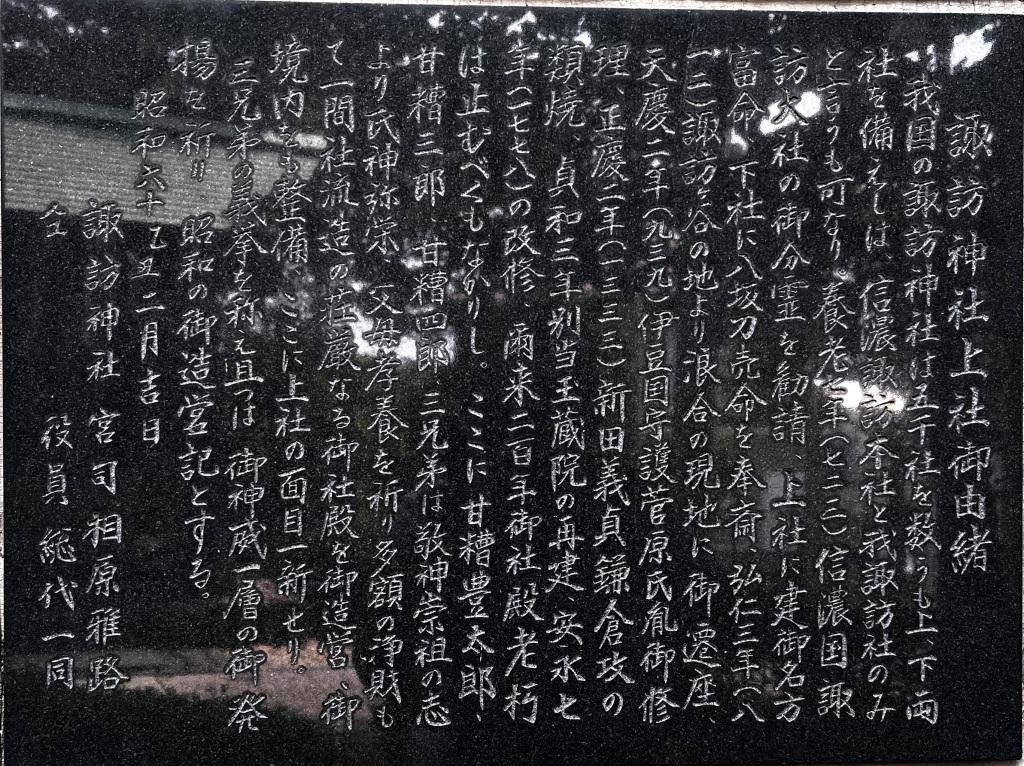 諏訪神社上社御由緒
我国の諏訪神社は五千社を数うも上、下両
社を備えしは、信濃諏訪本社と我諏訪社のみ
と言うも可なり。養老七年(七二三)信濃国諏
訪大社の御分霊を勧請、上社に建御名方
富命、下社に八坂刀売命を奉斎、弘仁三年(八
一二)諏訪ヶ谷の地より浪合の現地に御遷座、
天慶二年(九三九)伊豆国守護菅原氏胤御修
理、正慶二年(一三三三)新田義貞鎌倉攻の
類焼、貞和三年別当玉蔵院の再建、安永七
年(一七七八)の改修、爾来二百年御社殿老朽
は止むべくもなかりし。ここに甘糟豊太郎、
甘糟三郎、甘糟四郎、三兄弟は敬神崇祖の志
より氏神弥栄、父母孝養を祈り多額の浄財も
て一間社流造の荘厳なる御社殿を御造営、御
境内をも整備、ここに上社の面目一新せり。
三兄弟の義挙を称え且つは御神威一層の御発
揚を祈り昭和の御造営記とする。
昭和六十乙丑二月吉日
諏訪神社 宮司相原雅路
仝 役員総代一同